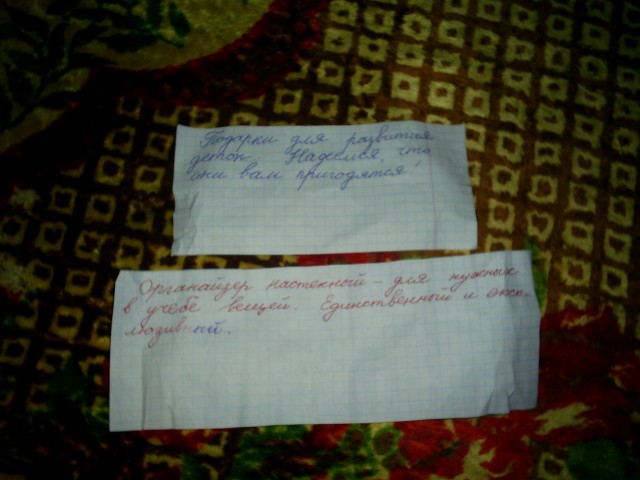 Подарки для развития
деток. Надеемся, что
они вам пригодятся!
Органайзер настенный – для нужных
в учёбе вещей. Единственный и экск-
люзивный.